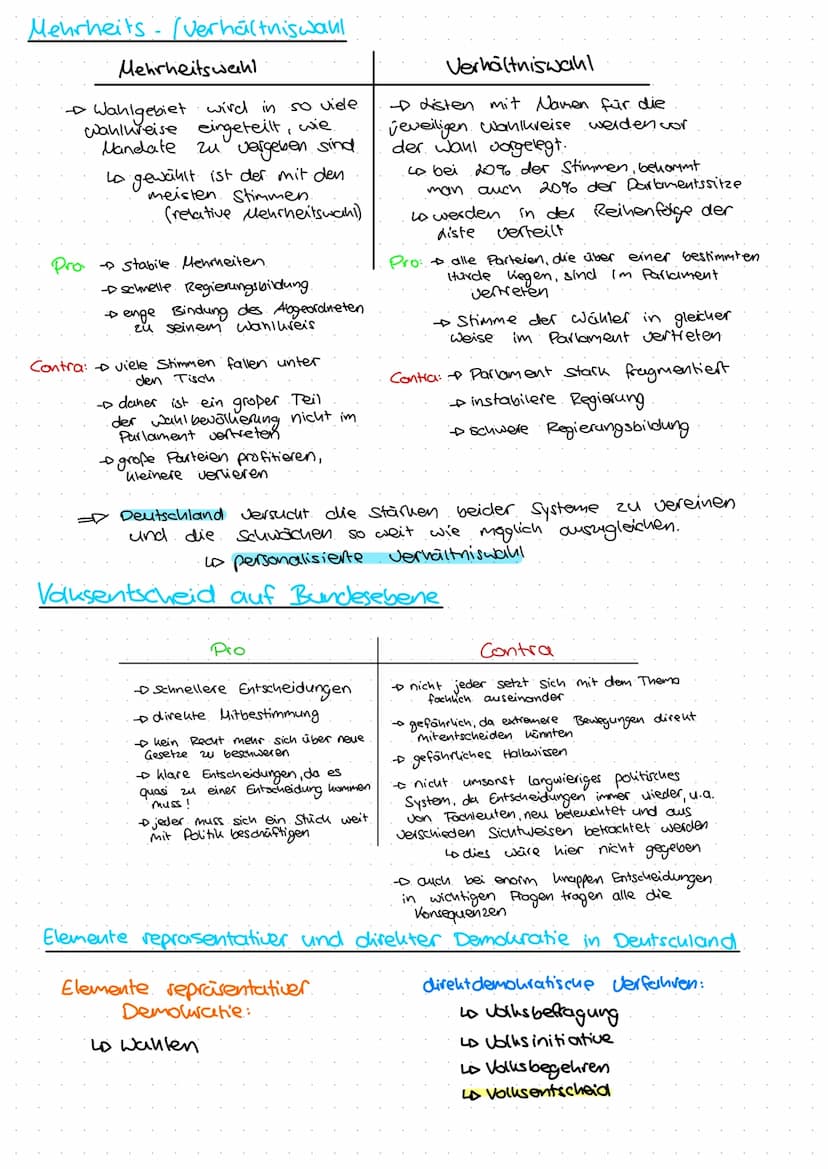 Mehrheits-/Verhältniswahl
Mehrheitswahl
→ Wahlgebiet wird in so viele
Wahlkreise eingeteilt, wie
Mandate zu vergeben sind
↳ gewählt ist der mit den
meisten Stimmen
(relative Mehrheitswahl)
Pro: → stabile Mehrheiten
→ schnelle Regierungsbildung
→ enge Bindung des Abgeordneten
zu seinem Wahlkreis
Contra: → viele Stimmen fallen unter
den Tisch
→ daher ist ein großer Teil
der Wahlbevölkerung nicht im
Parlament vertreten
→ große Parteien profitieren,
kleinere verlieren
Verhältniswahl
→ Listen mit Namen für die
jeweiligen Wahlkreise werden vor
der Wahl vorgelegt.
↳ bei 20% der Stimmen, bekommt
man auch 20% der Parlamentssitze
↳ werden in der Reihenfolge der
Liste verteilt
Pro: → alle Parteien, die über einer bestimmten
Hürde liegen, sind im Parlament
vertreten
→ Stimme der Wähler in gleicher
Weise im Parlament vertreten
Contra: → Parlament stark fragmentiert
→ instabilere Regierung
→ schwere Regierungsbildung
⇒ Deutschland versucht die Stärken beider Systeme zu vereinen
und die Schwächen so weit wie möglich auszugleichen.
↳ personalisierte Verhältniswahl
Volksentscheid auf Bundesebene
Pro
→ schnellere Entscheidungen
→ direkte Mitbestimmung
→ kein Recht mehr sich über neue
Gesetze zu beschweren
→ klare Entscheidungen, da es
quasi zu einer Entscheidung kommen
muss!
→ jeder muss sich ein Stück weit
mit Politik beschäftigen
Contra
→ nicht jeder setzt sich mit dem Thema
fachlich auseinander
→ gefährlich, da extremere Bewegungen direkt
mitentscheiden könnten
→ gefährliches Halbwissen
→ nicht umsonst langwieriges politisches
System, da Entscheidungen immer wieder, u.a.
von Fachleuten, neu beleuchtet und aus
verschieden Sichtweisen betrachtet werden
↳ dies wäre hier nicht gegeben
→ auch bei enorm knappen Entscheidungen
in wichtigen Fragen tragen alle die
Konsequenzen
Elemente repräsentativer und direkter Demokratie in Deutschland
Elemente repräsentativer
Demokratie:
↳ Wahlen
direktdemokratische Verfahren:
↳ Volksbefragung
↳ Volksinitiative
↳ Volksbegehren
↳ Volksentscheid